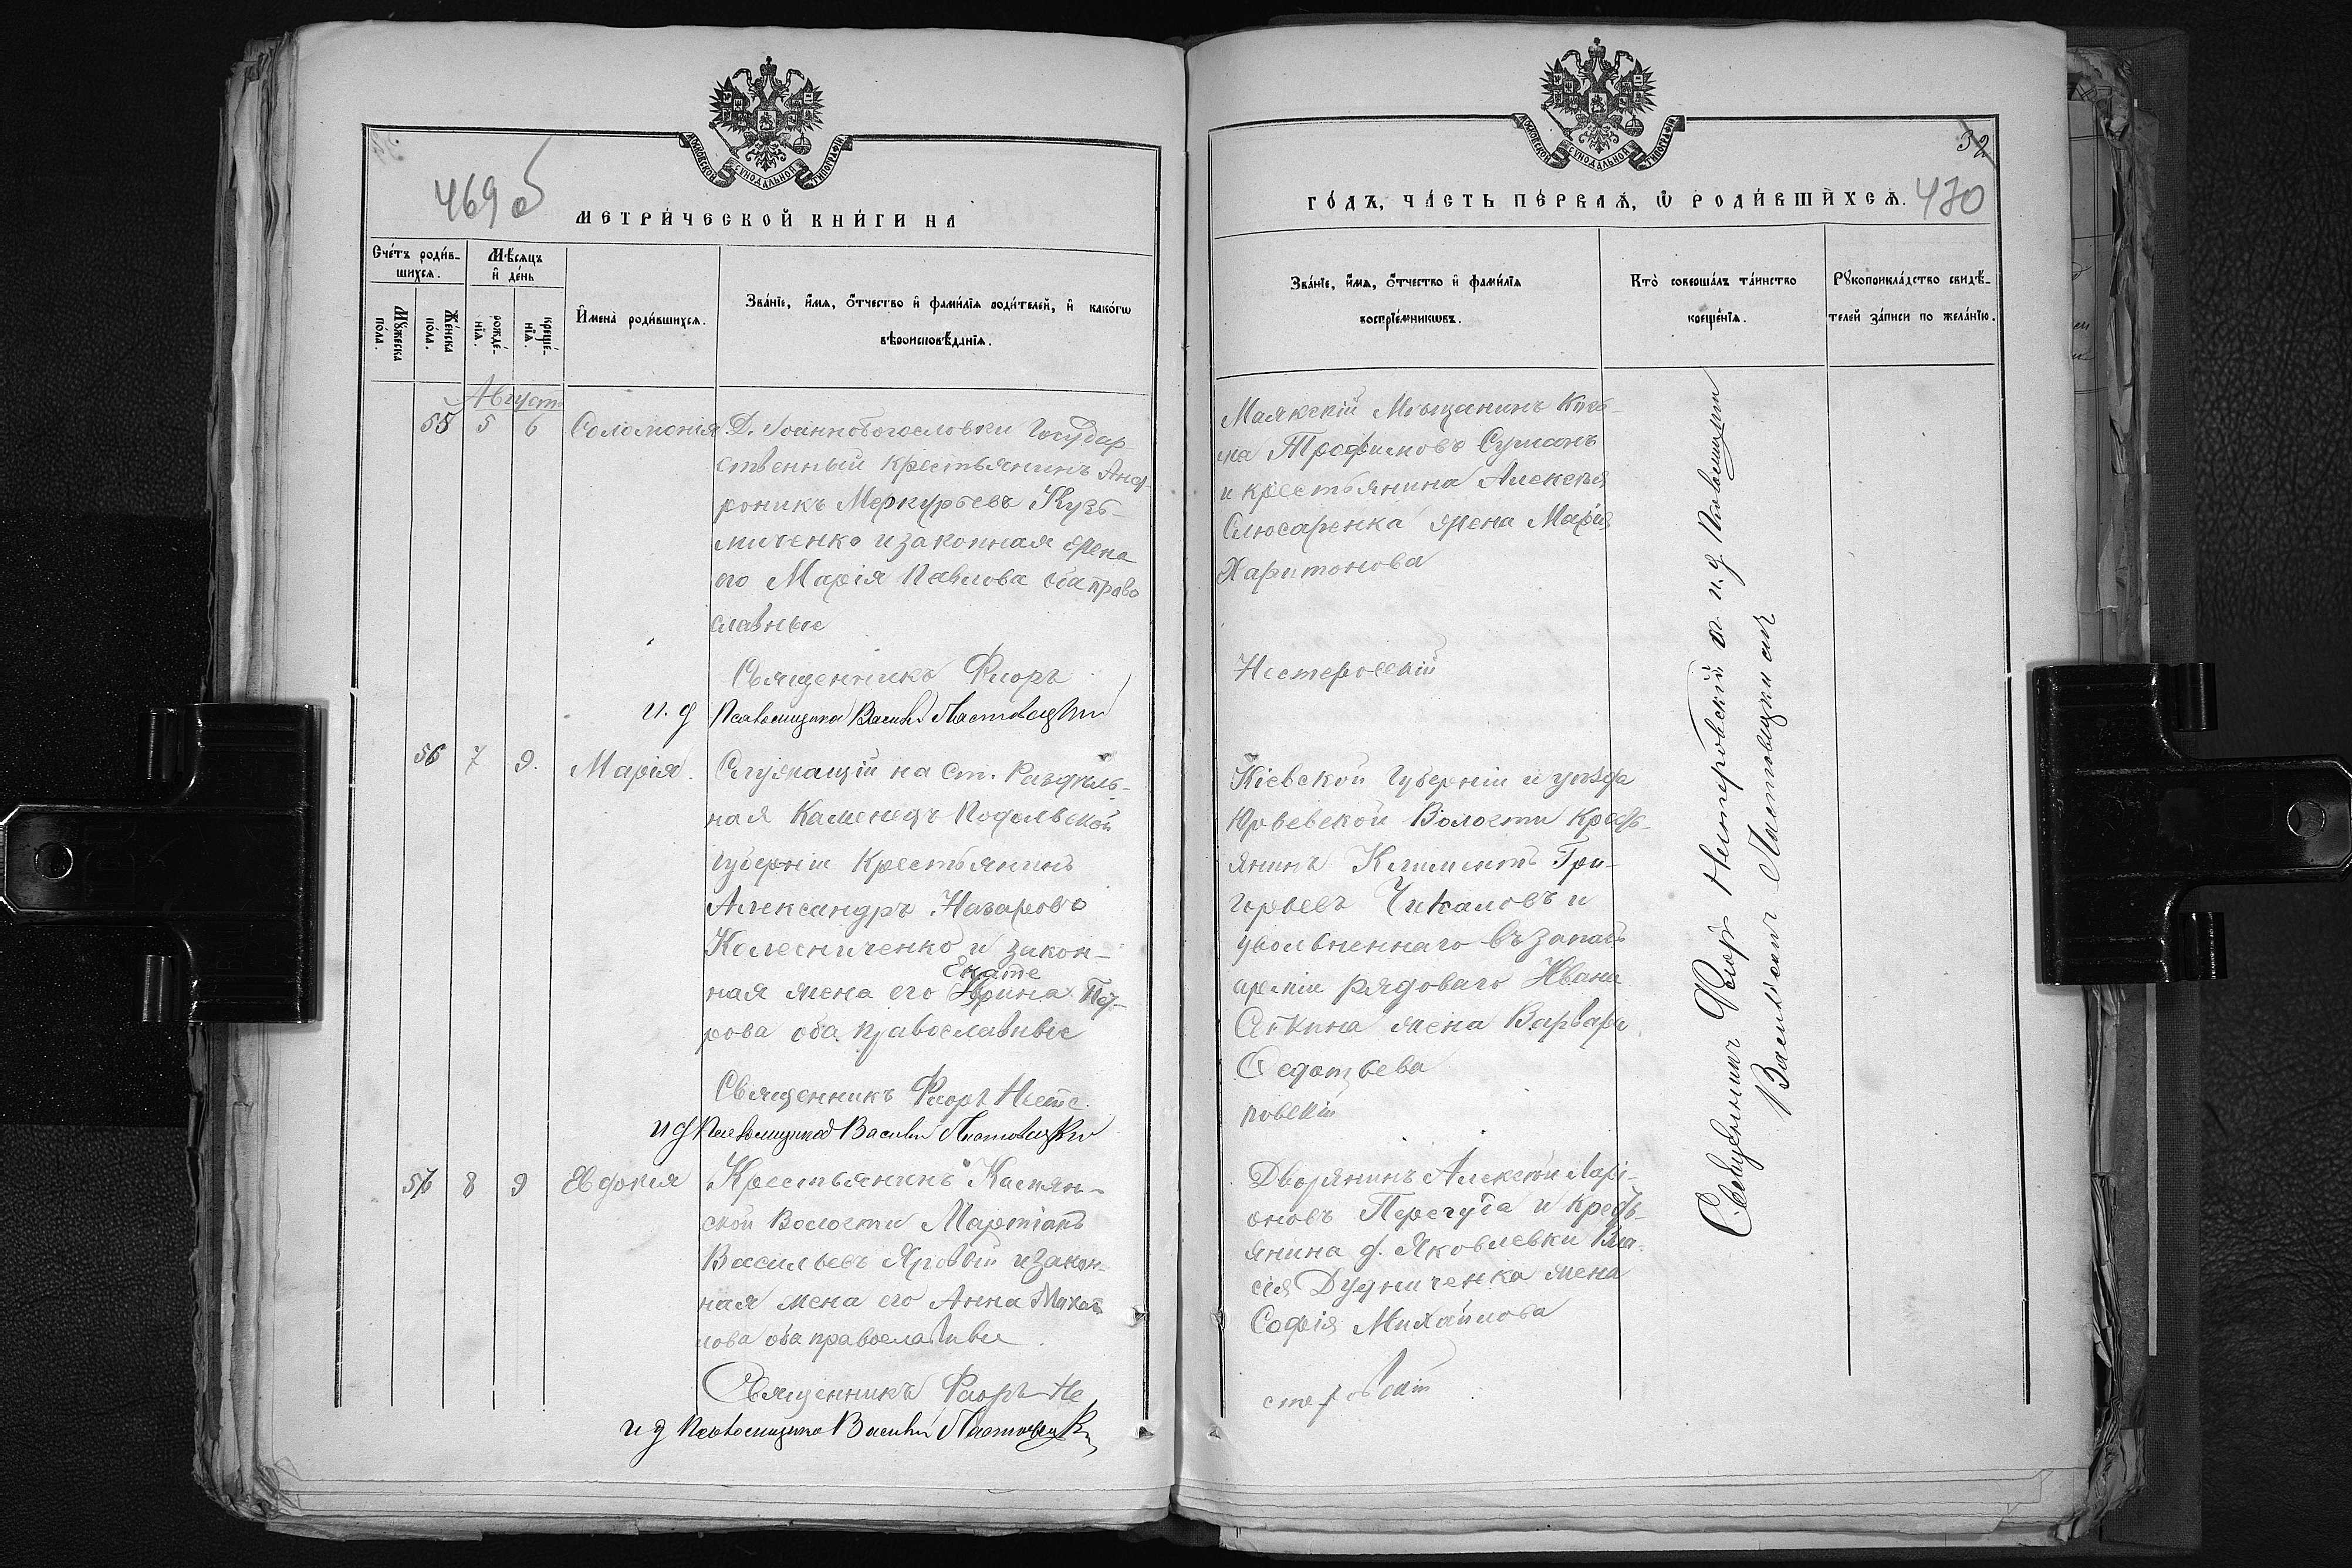 МОСКОВСКОЙ СѴНОДАЛЬНОЙ ТИПОГРАФІИ
469 об
МЕТРИ́ЧЕСКОЙ КНИ́ГИ НА
Сче́тъ роди́в-
шихся.
Мѣ́сяцъ
и҆ де́нь
Мꙋ́жеска
по́ла.
Же́нска
по́ла.
рожде́-
нїѧ.
креще́-
нїѧ.
И҆мена̀ роди́вшихсѧ.
Зва́нїе, и҆́мѧ, о҆́тчество и҆ фами́лїѧ роди́телей, и҆ како́гѡ
вѣроисповѣ́данїѧ.
Август
55 5 6 Соломонія
Д. Іоанновогословки Государ
ственный крестьянинъ Анд-
роникъ Меркурьевъ Кузь-
миченко и законная жена
его Марія Павлова оба право
славные
Священникъ Флоръ
и. д Псаломщика Василій Листовецкій
56 7 9. Марія.
Служащій на Ст. Раздѣль-
ная Каменецъ Подольской
Губерніи Крестьянинъ
Александръ Назаровъ
Колесниченко и закон-
Екате
ная жена его Ирина Пет-
рова оба православные
Священникъ Флоръ Несте
и д Псаломщика Василій Листовецкій
56 8 9 Евдокія
Крестьянинъ Касьян-
ской Волости Мартіанъ
Васильевъ Яровый и закон-
ная жена его Анна
лова оба православные
Священникъ Флоръ Не
и д Псаломщика Василій Листовецкій
МОСКОВСКОЙ СѴНОДАЛЬНОЙ ТИПОГРАФІИ
32
ГО́ДЪ, ЧА́СТЬ ПЕ́РВАѦ, Ѡ҆ РОДИ́ВШИХСѦ.
470
Зва́нїе, и҆́мѧ, о҆́тчество и҆ фами́лїѧ
воспрїе́мникѡвъ.
Кто̀ соверша́лъ та́инство
креще́нїѧ.
Рꙋкоприкла́дство свидѣ́-
телей за́писи по жела́нїю.
Маякскій Мѣщанинъ Козь-
ма Трофимовъ Сулинъ
и крестьянина Алексѣя
Слюсаренка жена Марія
Харитонова
Нестеровскій
Кіевской Губерніи и уѣзда
Юрьевской Волости Кресть-
янинъ Климентъ Гри-
горьевъ Чикаловъ и
уволеннаго въ запасъ
арміи рядоваго Ивана
жена Варвара
Федотьева
ровскій
Дворянинъ Алексѣй Ларі-
оновъ Перегуда и Кресть-
янина д. Яковлевки Вла-
сія Дудниченка жена
Софія Михайлова
стеровскій
Священникъ Флоръ Нестеровскій и. д Псаломщика
Василій Листовецкій